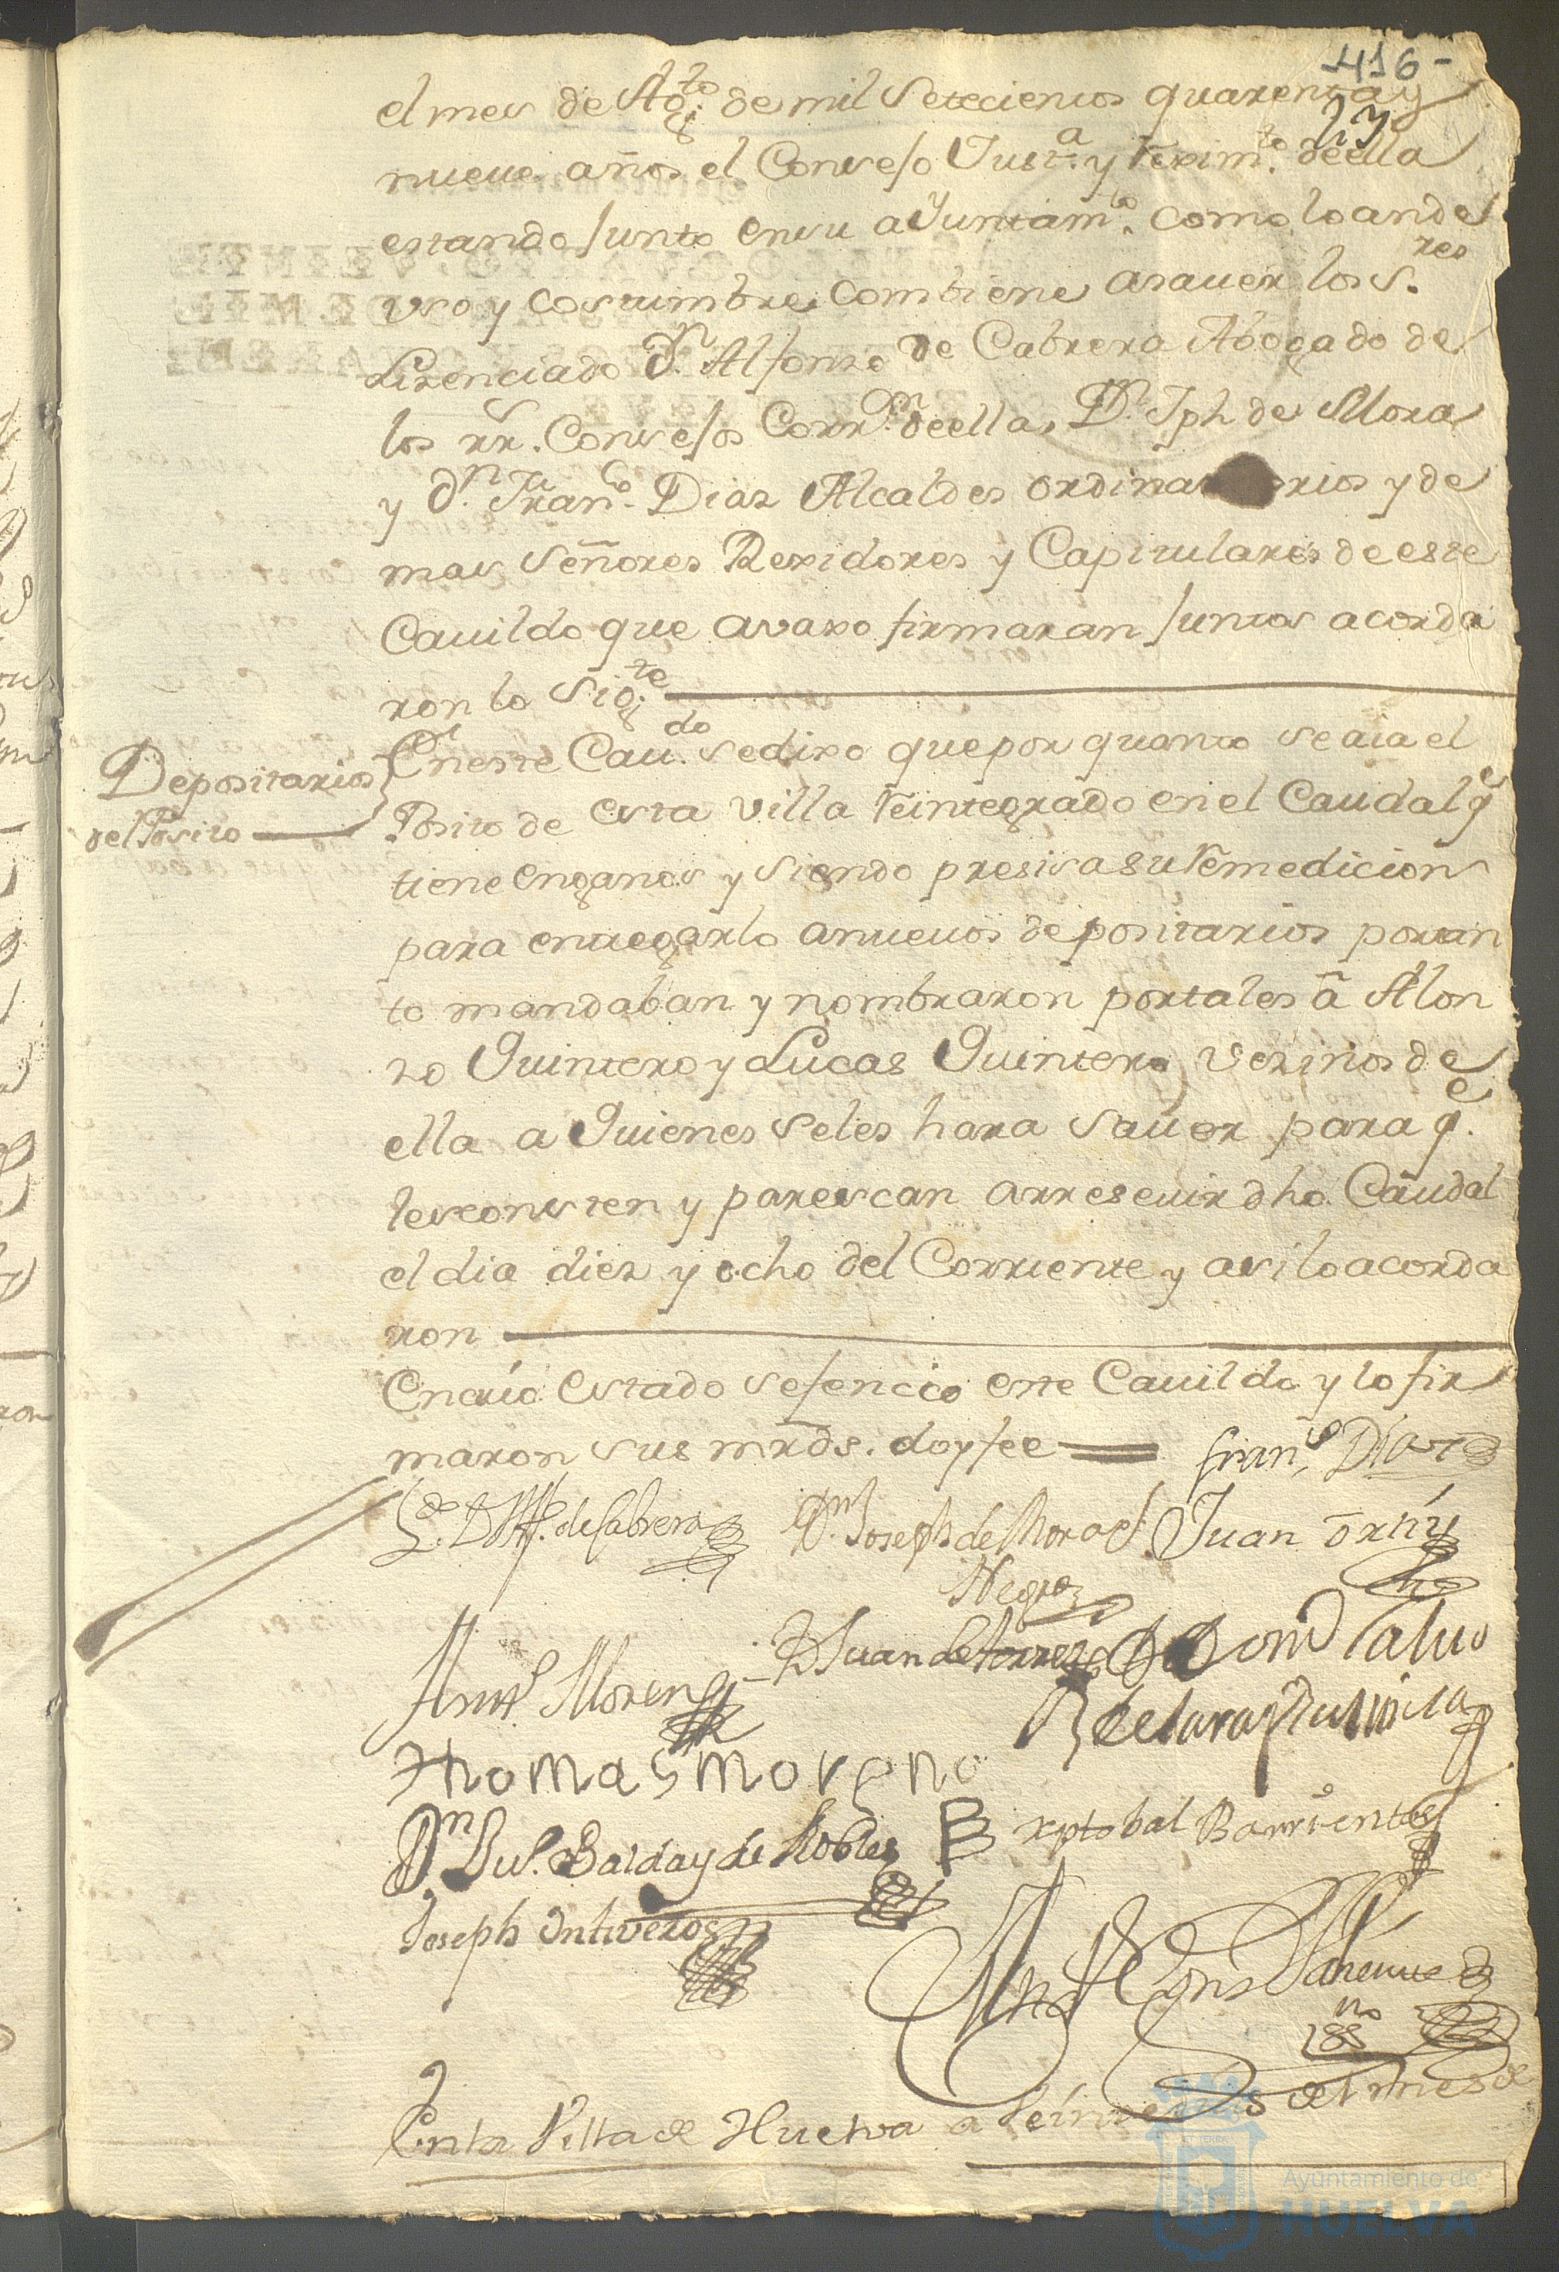 416-
27
el mes de Agto. de mil Setecientos quarenta y
nueve años el Consejo Justa. y Reximto. de ella
estando Junto en su aYuntamto. como lo an de
uso y costumbre combiene asaver los Sres.
Lizenciado Dn. Alfonso de Cabrera Abogado de
los rr. Consejos Corror. de ella, Dn. Jph de Mora
y Dn. Franco. Diaz Alcaldes ordinarios y de
mas Señores Rexidores y Capitulares de este
Cauildo que avaxo firmaran Juntos acorda
ron lo Sigte.
Depositarios
del Posito
En este Caudo. se dixo que por quanto se aia el
Posito de esta Villa Reintegrado en el Caudal qe
tiene en ganos y siendo presisa su Remedicion
para entregarlo a nuevos depositarios por tan
to mandaban y nombraron por tales â Alon
zo Quintero y Lucas Quintero Vezinos de
ella a Quienes se les hara Sauer para qe.
les consten y parescan a rreseuir dho. Caudal
el dia diez y ocho del Corriente y asi lo acorda
ron
En cuio estado se fencio este Cauildo y lo fir
maron sus mrds. doy fee
Franco. Diaz
Ldo. D Alf. de Cabrera
Dn. Joseph de Mora
Negro
Juan ortiz
Anto Moreno
D Juan de torres
D Dom Calvo
de Lara
Thomas moreno
Dn
Balda y de Robles
xptobal Barrientos
Joseph Ontiveros
Anto
esno
En la Villa de Huelva a Veinte seis del mes de
Ayuntamiento de
HUELVA